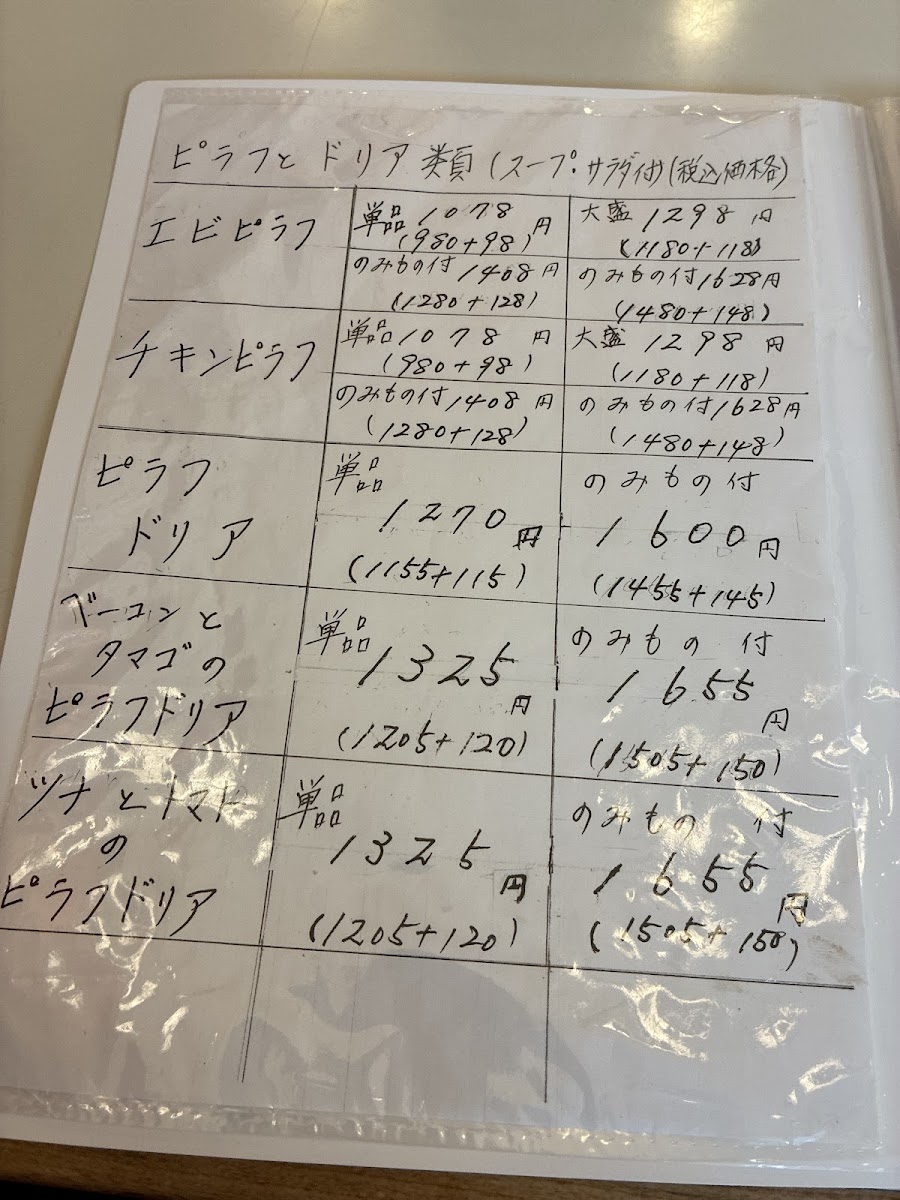 ピラフと ドリア 類 (スープ・サラダ付)(税込価格)
エビピラフ
単品 1078円
(980+98)
大盛 1298円
(1180+118)
のみもの付 1408円
(1280+128)
のみもの付 1628円
(1480+148)
チキンピラフ
単品 1078円
(980+98)
大盛 1298円
(1180+118)
のみもの付 1408円
(1280+128)
のみもの付 1628円
(1480+148)
ピラフ
ドリア
単品
1270円
(1155+115)
のみもの付
1600円
(1455+145)
ベーコンと
タマゴの
ピラフドリア
単品
1325円
(1205+120)
のみもの 付
1655円
(1505+150)
ツナとトマト
の
ピラフドリア
単品
1325円
(1205+120)
のみもの 付
1655円
(1505+150)